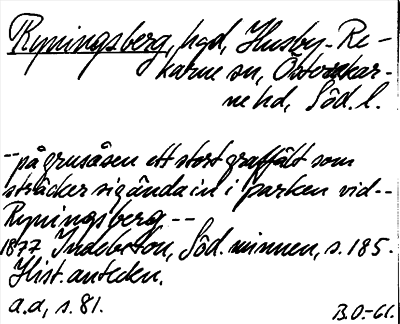 Ryningsberg, hgd, Husby-Re-
karne sn, Österrekar-
ne hd, Söd. l.
--på grusåsen ett stort graffält som
sträcker sig ända in i parken vid--
Ryningsberg--
1877 Indebetou, Söd. minnen, s. 185.
Hist. anteckn.
a.a, s. 81.
B.O.-61.